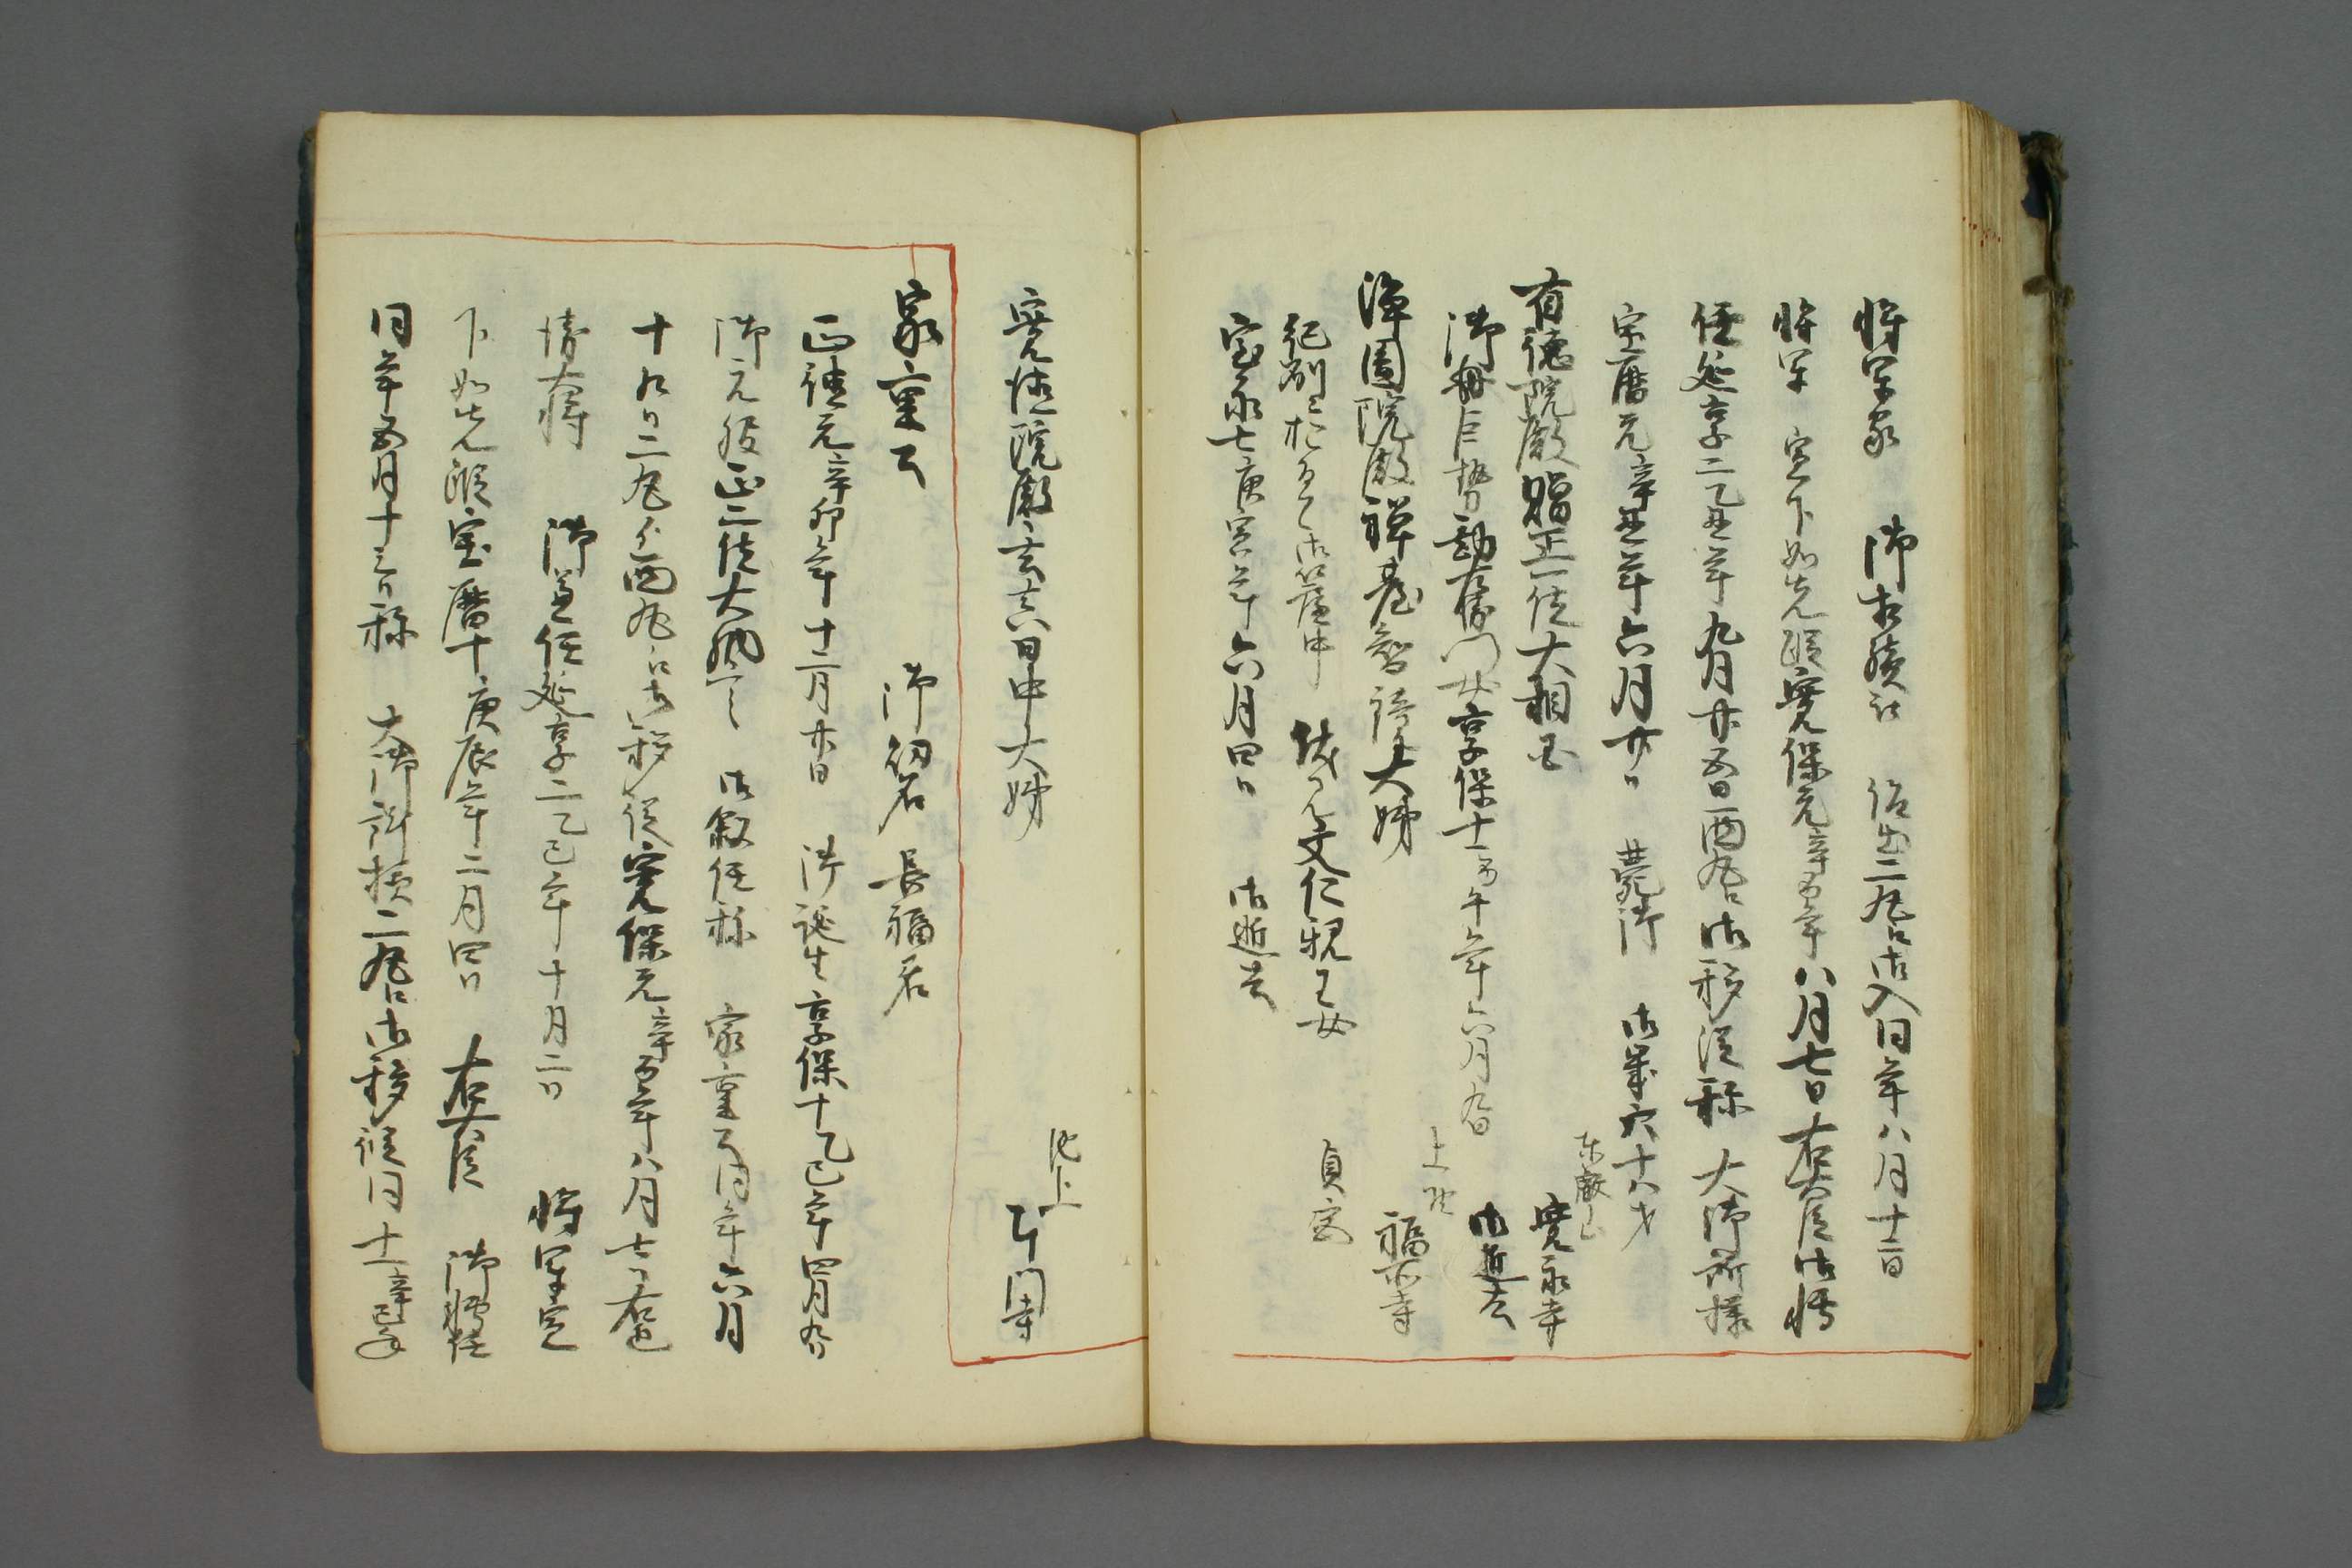 将軍家 御相続被 仰出二丸江御入同年八月十三日
将軍 宣下如先蹤寛保元辛酉年八月七日右大臣御転
任延享二乙丑年九月廿五日西丸江御移従称 大御所様
宝暦元辛未年六月廿日 薨御 御歳六十八才
東叡山 寛永寺
有徳院殿贈正一位大相国
御母巨勢勘左衛門女享保十一丙午年六月九日 御逝去
上野
浄円院殿禅台智鏡大姉 福寺
紀州ニ於るて御簾中 伏見文仁親王女 貞宮
宝永七庚寅年六月四日 御逝去
寛徳院殿玄真日中大姉
池上 本門寺
家重公 御幼名 長福君
正徳元辛卯年十二月廿一日 御誕生享保十乙巳年四月九日
御元服正二位大納言 御叙任称 家重公同年六月
十九日二丸ゟ西丸江御移徙寛保元辛酉年八月七日右近
衛大将 御兼任延享二乙丑年十月二日 将軍宣
下如先蹤宝暦十庚辰年二月四日 右大臣 御転任
同年五月十三日称 大御所様二丸江御移従同十一辛巳年